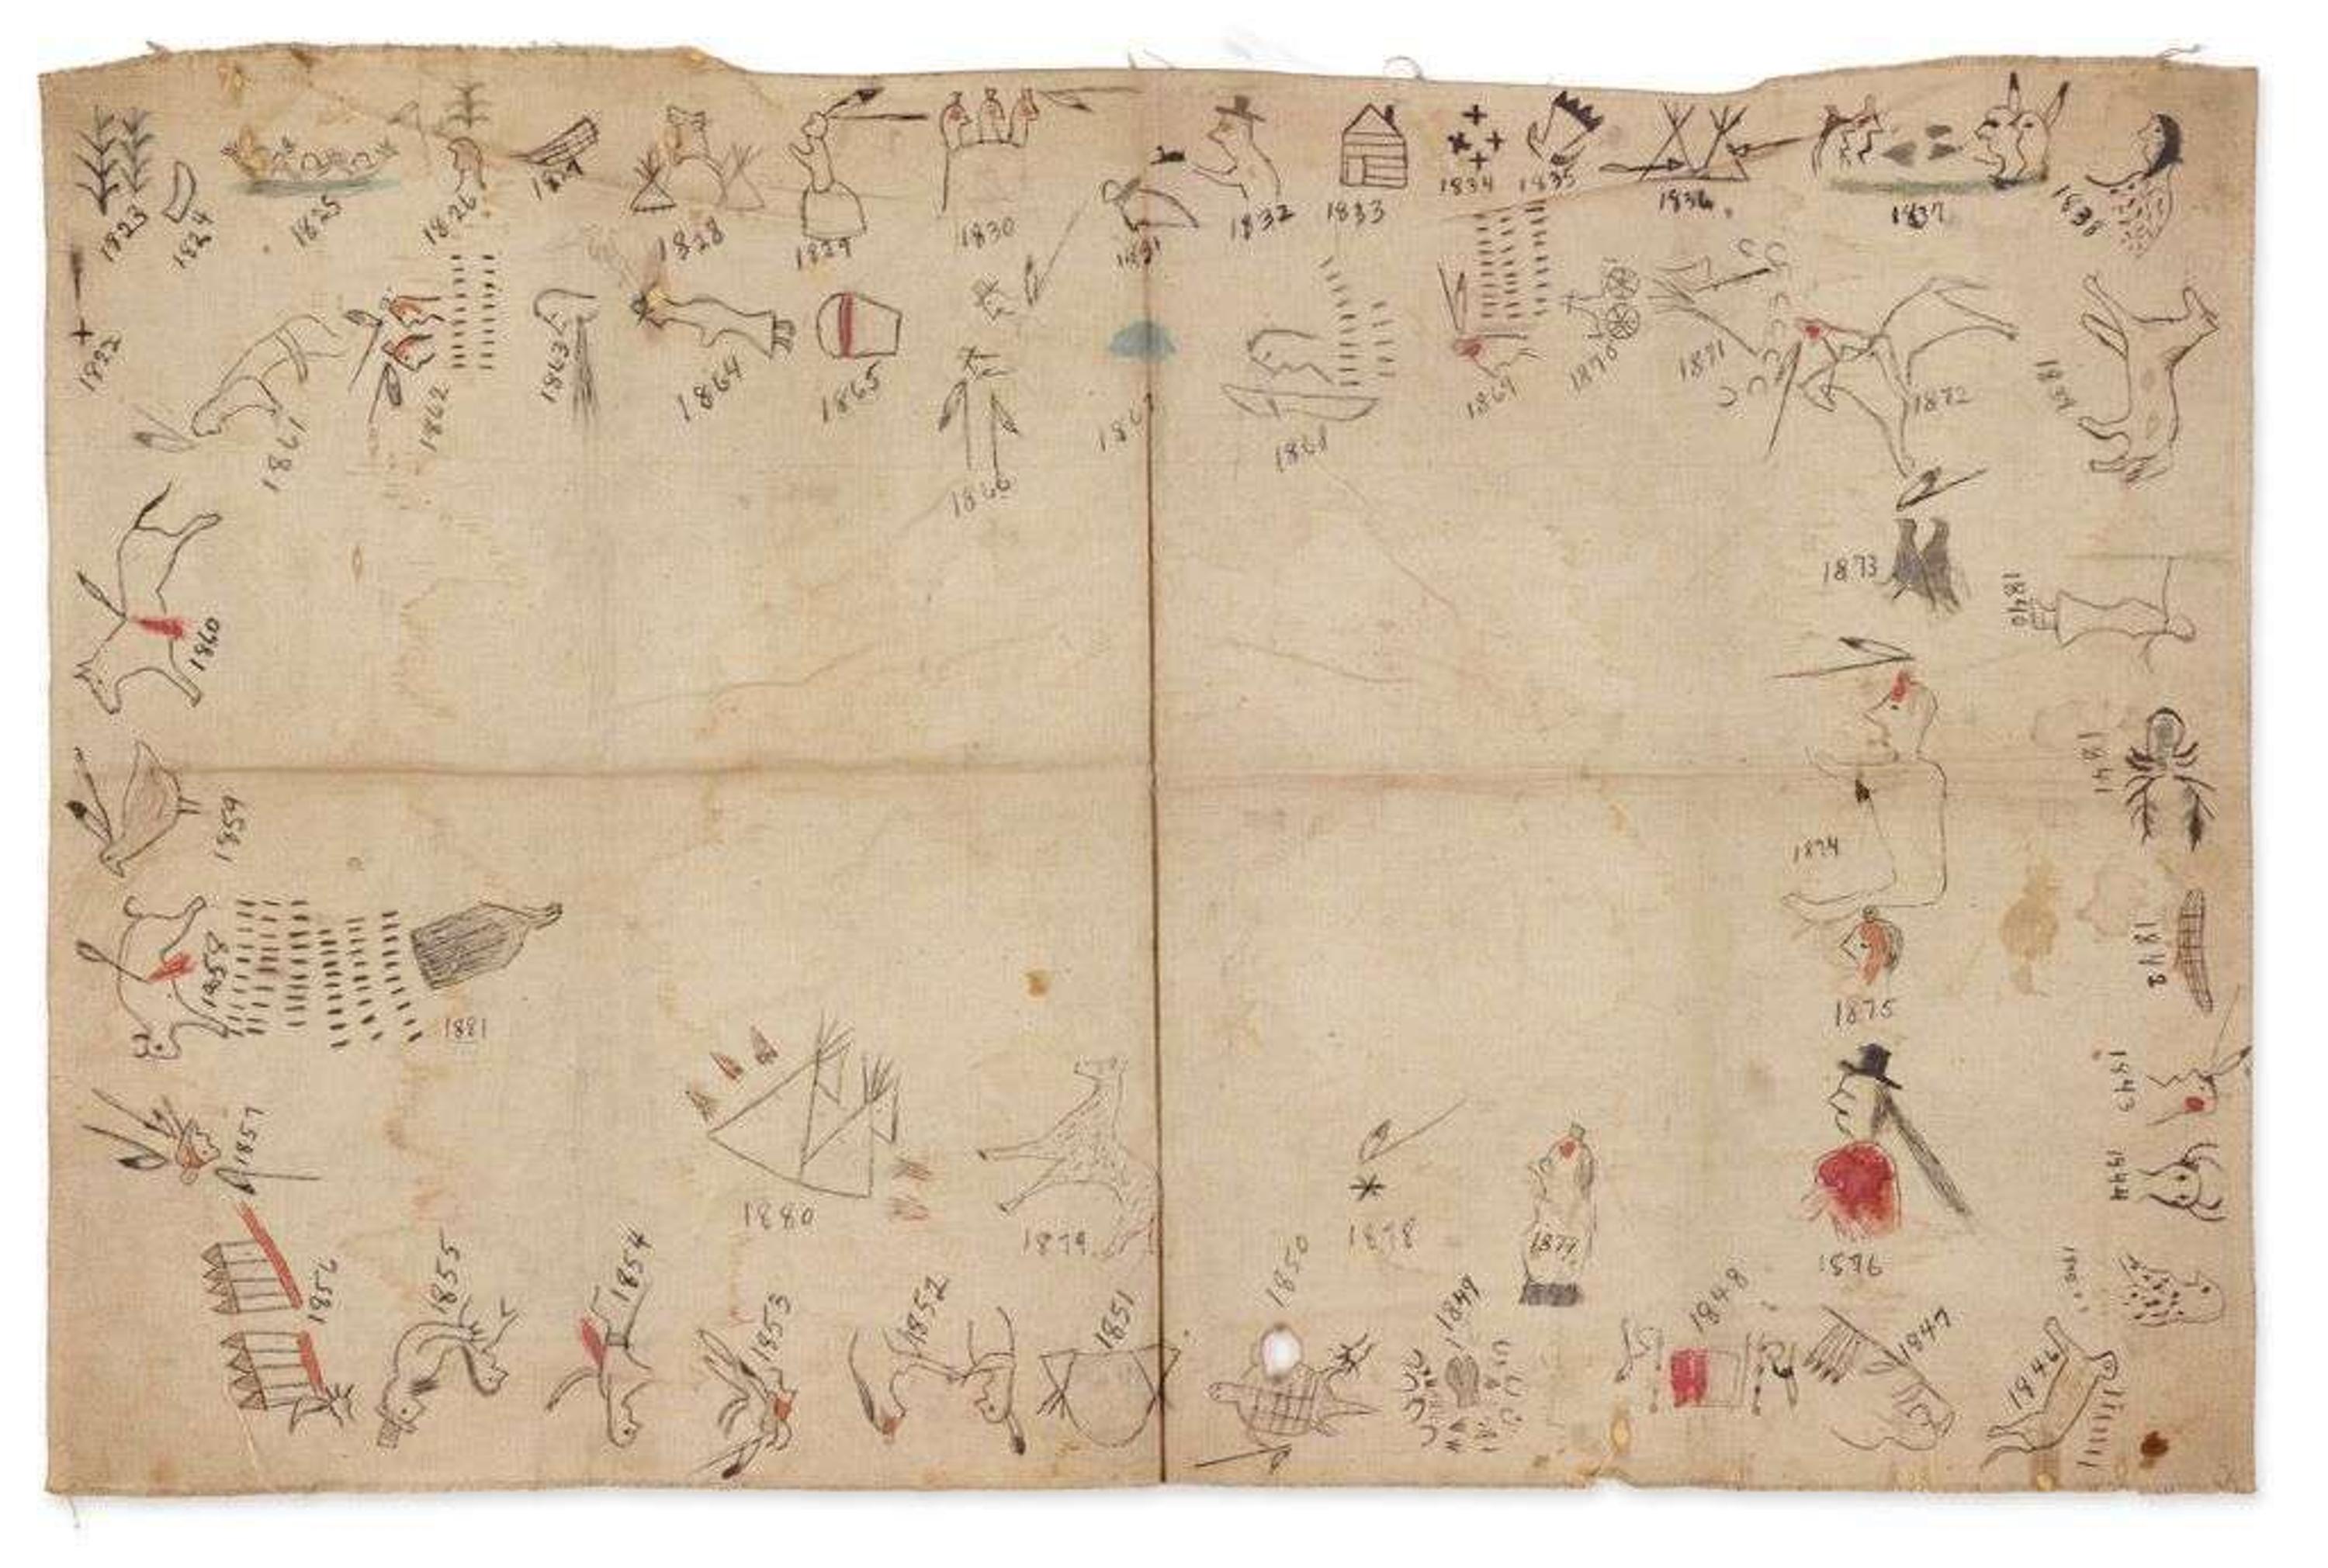 1822
1823
1824
1825
1826
1827
1828
1829
1830
1831
1832
1833
1834
1835
1836
1837
1838
1839
1840
1841
1842
1843
1844
1846
1847
1848
1849
1850
1851
1852
1853
1854
1855
1856
1857
1858
1859
1860
1861
1862
1863
1864
1865
1866
1867
1869
1870
1871
1872
1873
1874
1875
1876
1877
1878
1879
1880
1881